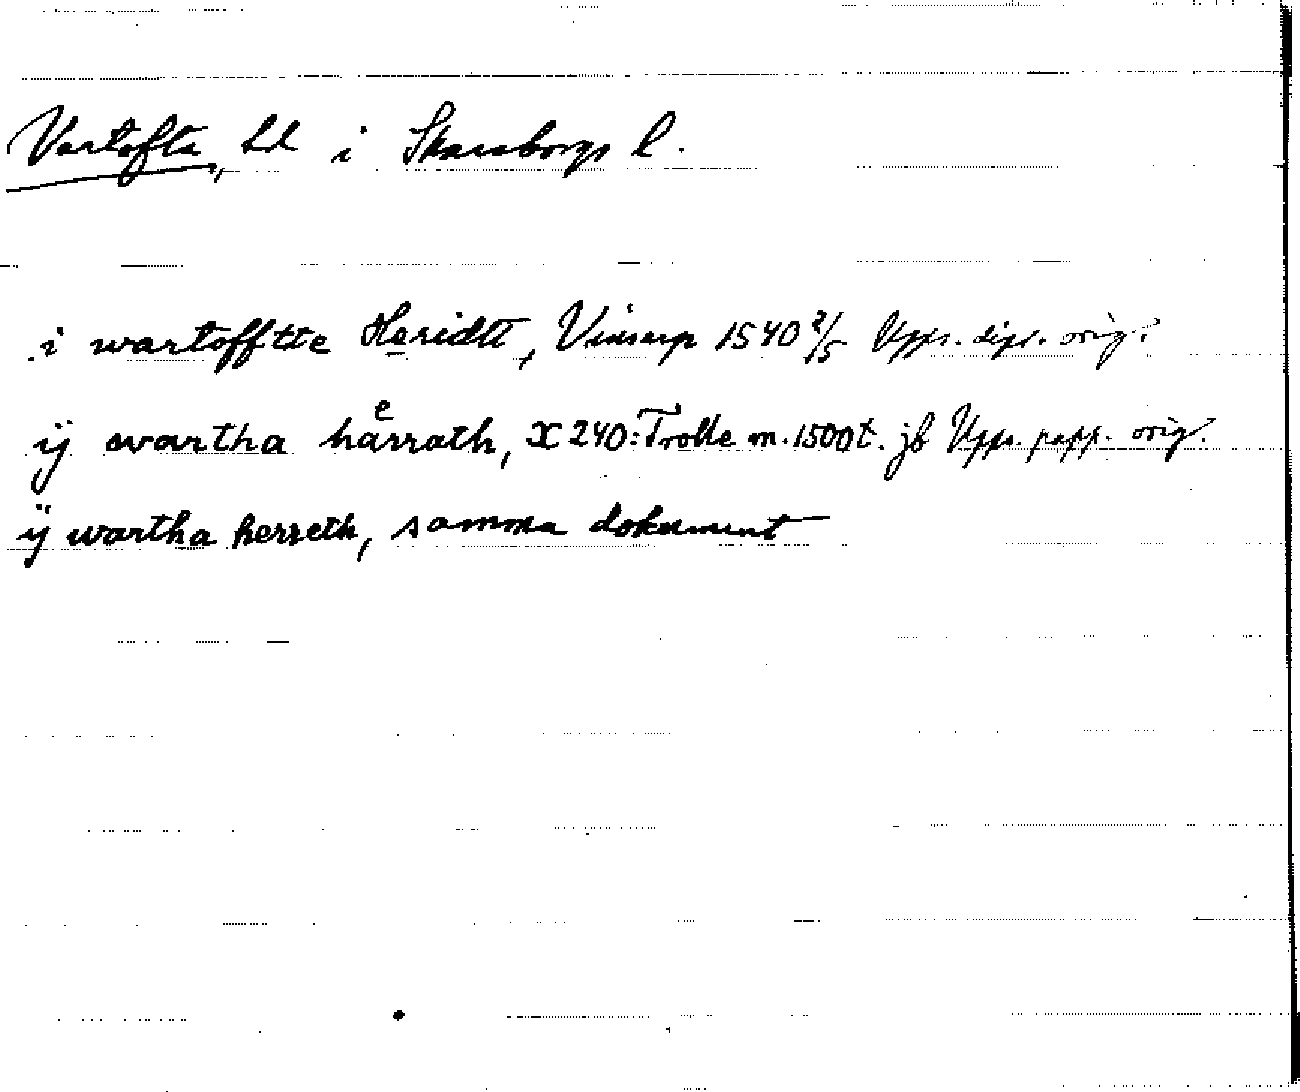 Vartofta, hd i Skaraborgs l.
i wartofftte Heridtt, Vinserp 1540 2/5 Upps. dipl. orig.
ÿ wartha hårrath, X 240: Trolle m. 1500t. jb Upps. papp. orig.
ÿ wartha herreth, samma dokument